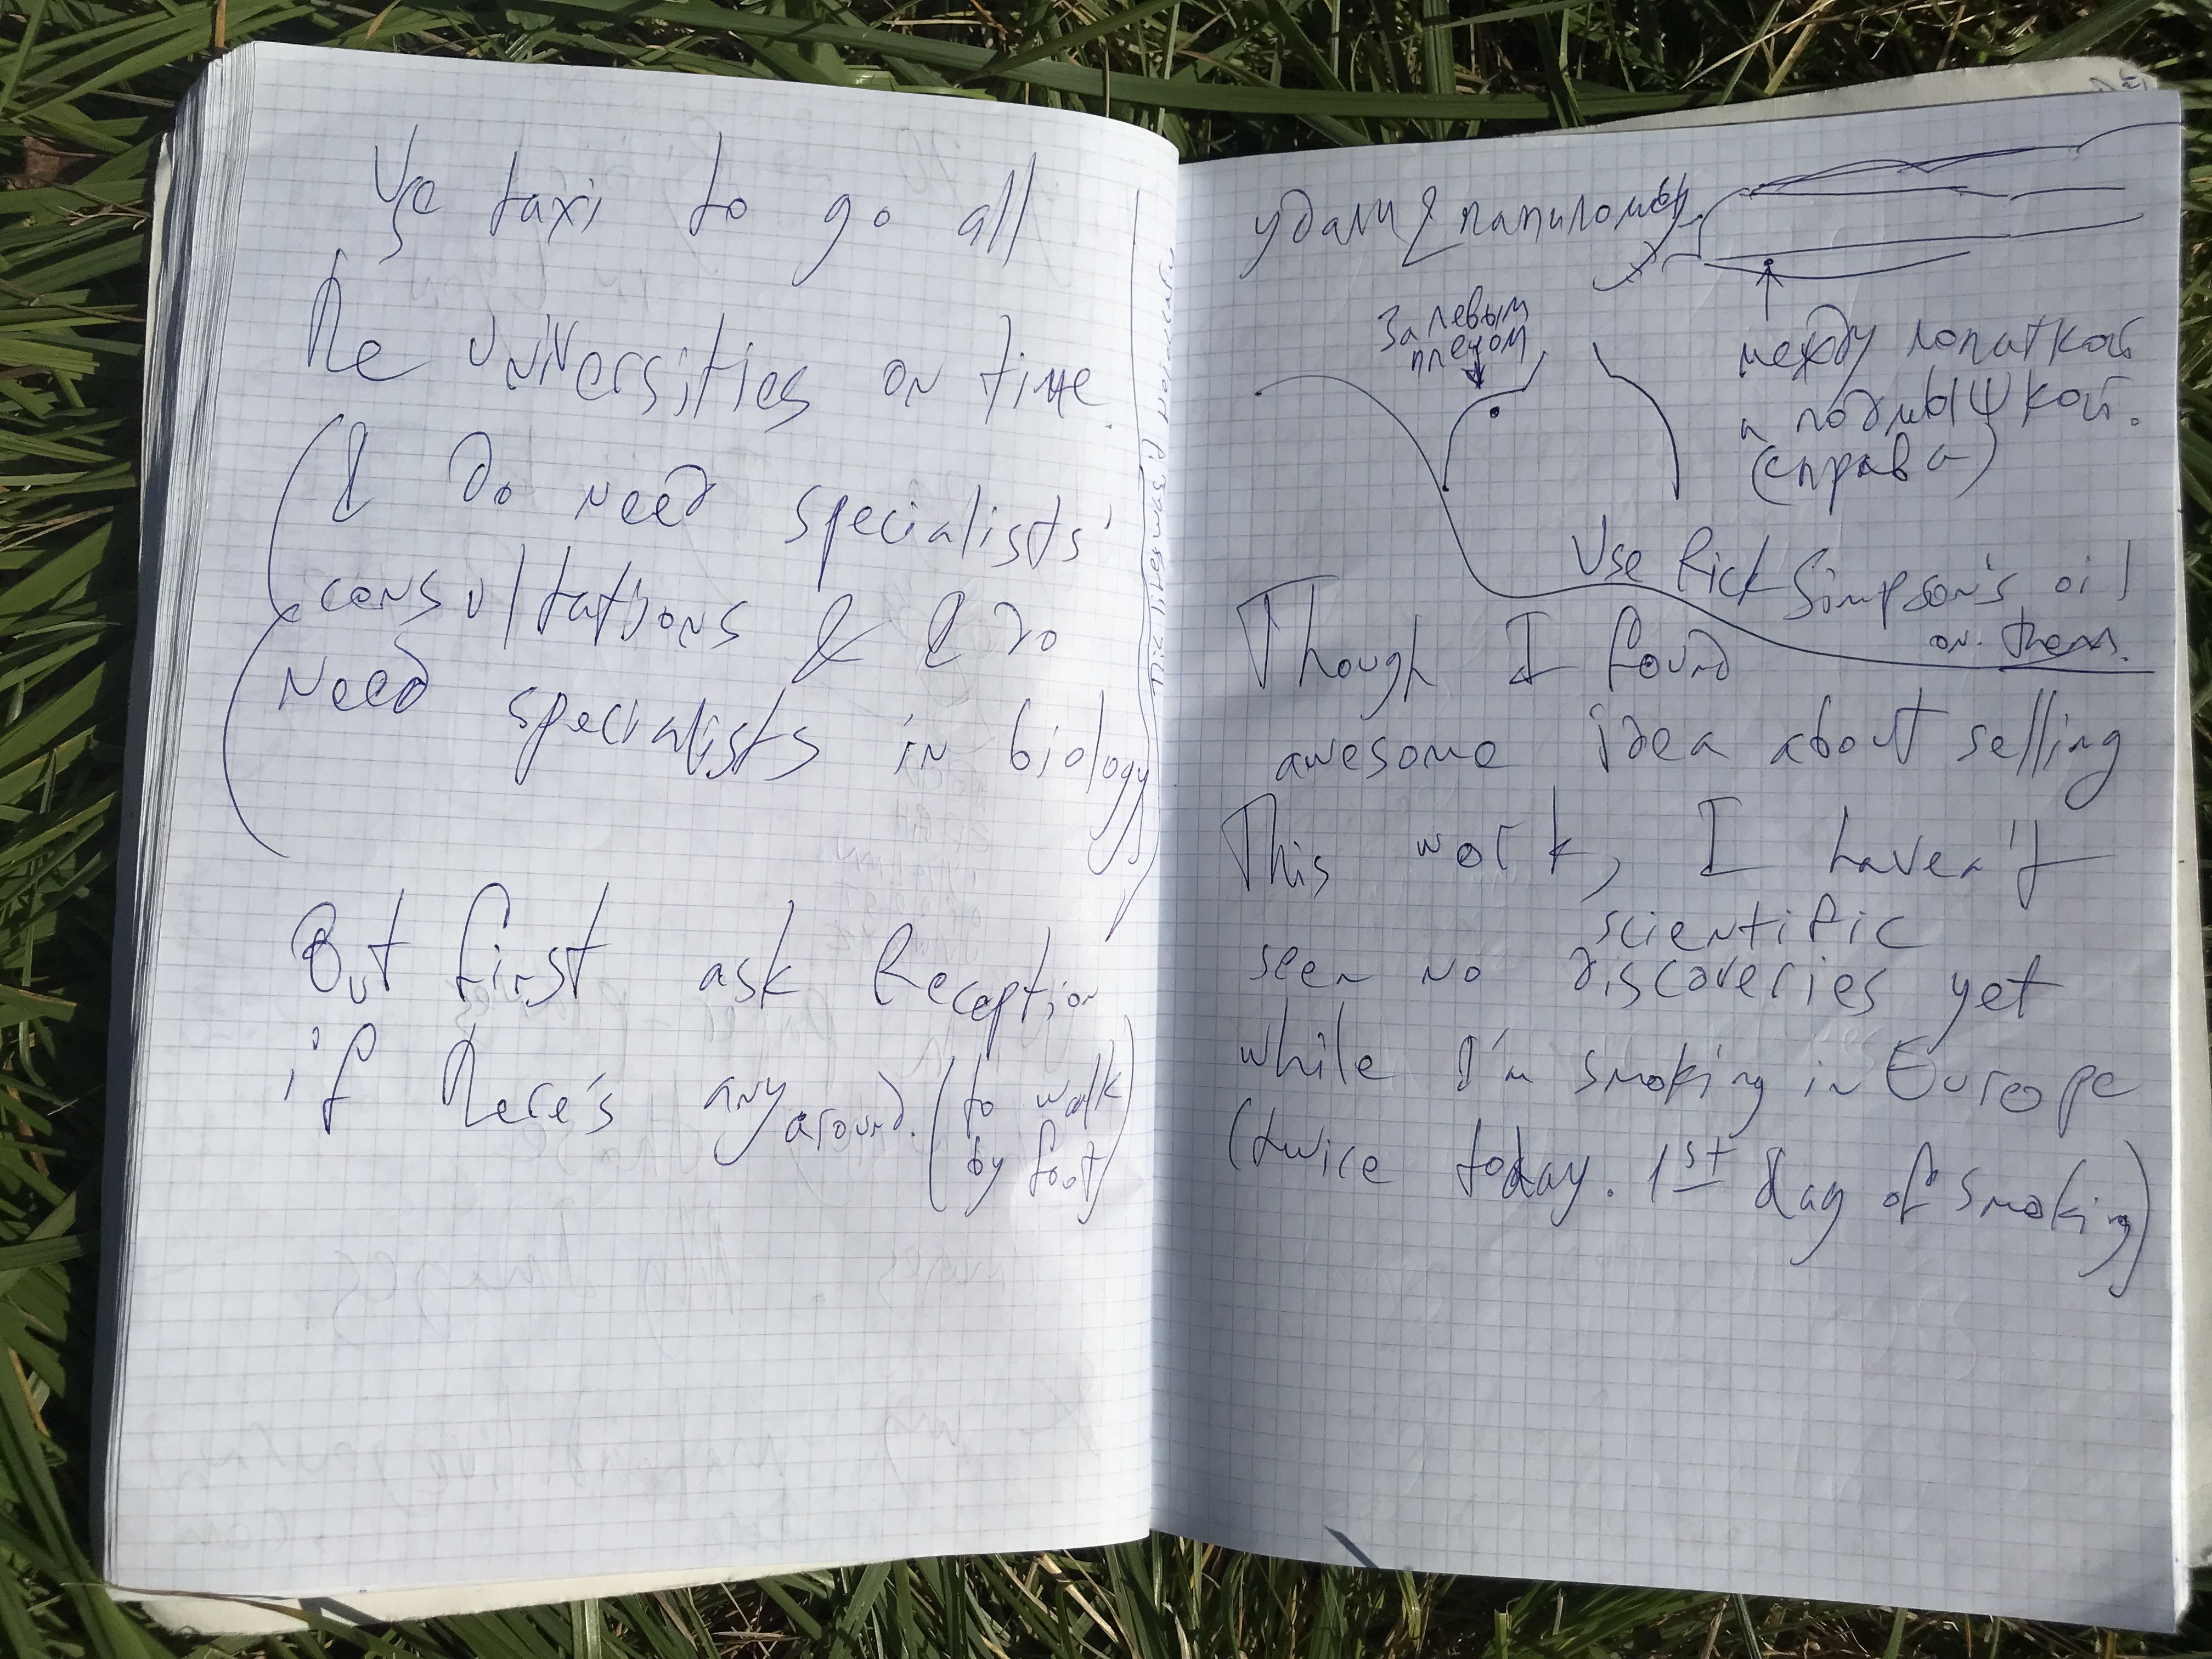 Ya taxi to go all
the universities on time.
I do need specialists'
consultations & I do
need specialists in biology
But first ask Reception
if there's any around. (to walk)
(by foot)
удалить папилломы
За левым
плечом
между лопаткой
и подмышкой.
(справа)
Use Rick Simpson's oil
on them.
Though I found
awesome idea about selling
This work, I haven't
seen no scientific
discoveries yet
while I'm smoking in Europe
(twice today. 1st day of smoking)